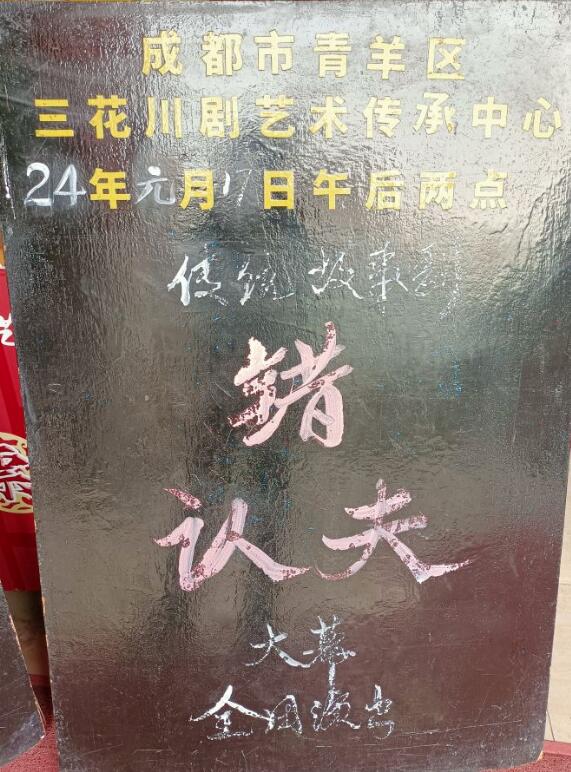 成都市青羊区
三花川剧艺术传承中心
24年元月17日午后两点
传统故事剧
错
认夫
大幕
全团演出